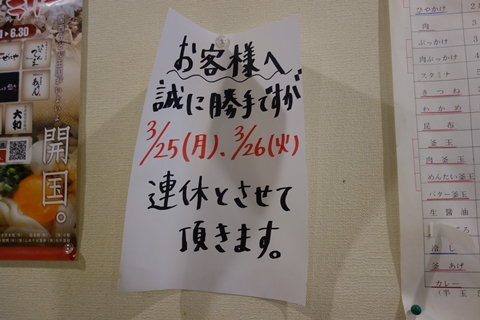 お客様へ
誠に勝手ですが
3/25(月)、3/26(火)
連休とさせて
頂きます。
6.30
大和
開国。
ひやかけ
肉
ぶっかけ
肉ぶっかけ
スタミナ
きつね
わかめ
昆布
釜玉
肉釜玉
めんたい釜玉
バター釜玉
生醤油
釜あげ
カレー